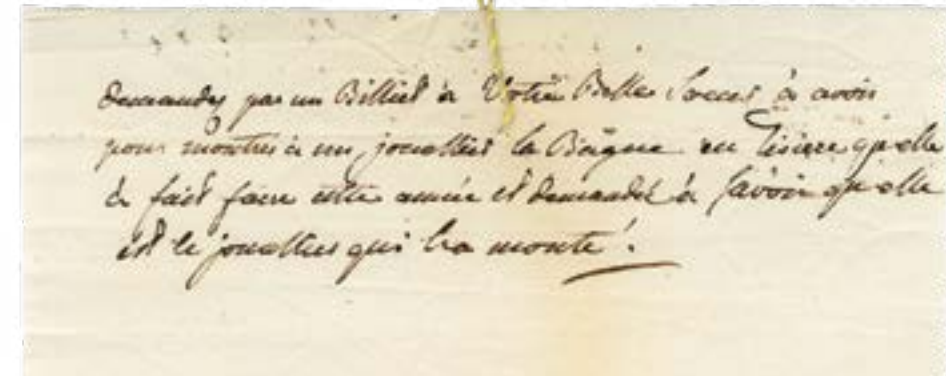 demandez par un Billiet à Votre Belle Soeur à avoir
pour montrer à un jouallier la Bague en qu'elle
à fait faire cette année et demandez à Savoir qu'elle
est le jouallier qui l'a monté !